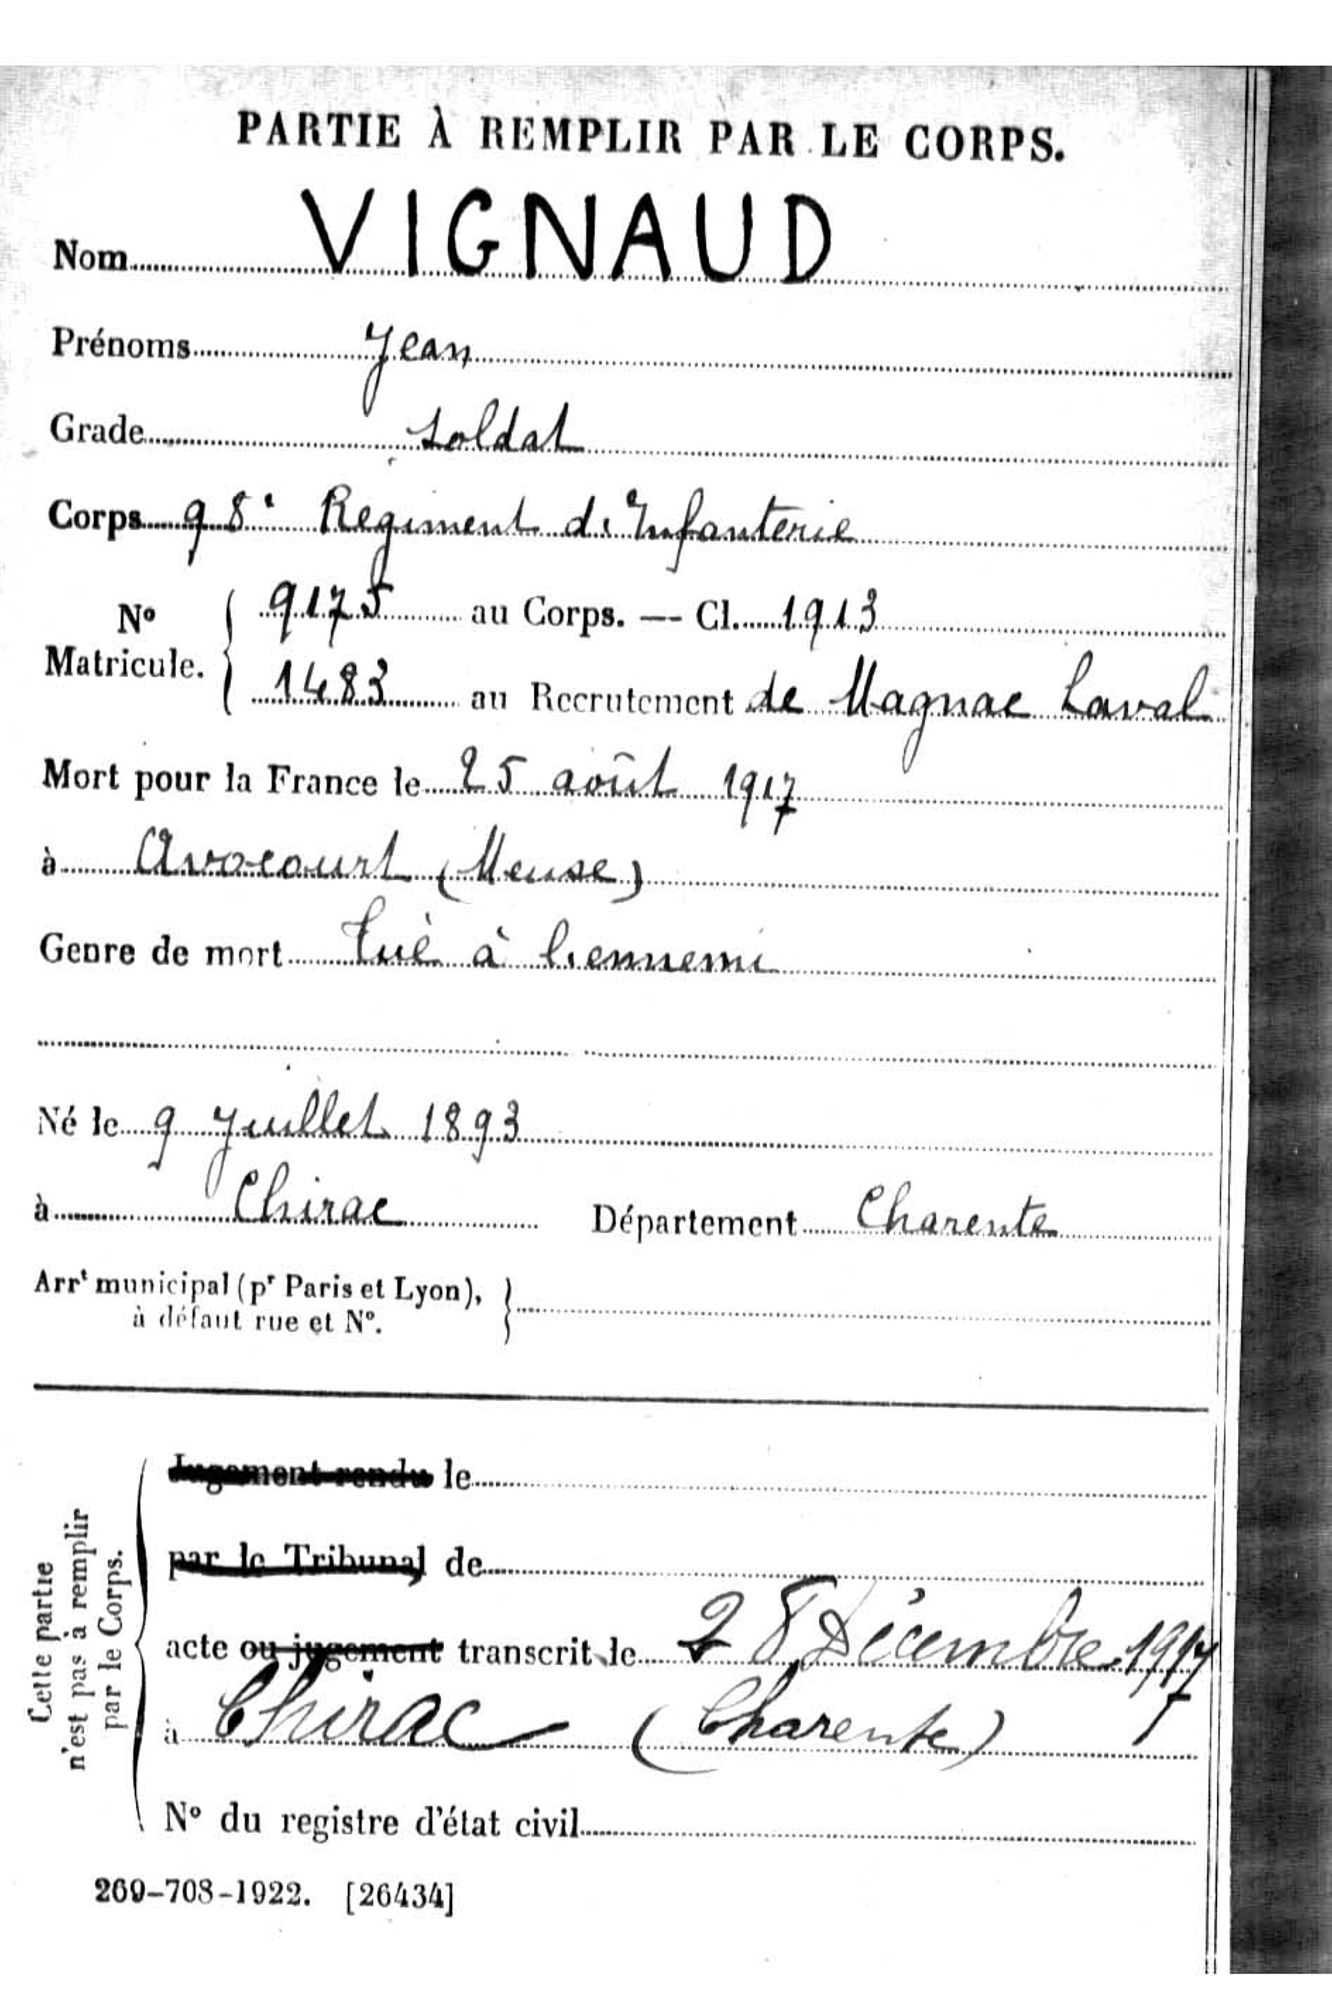 PARTIE À REMPLIR PAR LE CORPS.
Nom VIGNAUD
Prénoms Jean
Grade Soldat
Corps 98e Regiment d'Infanterie
No Matricule. { 9175 au Corps. — Cl. 1913
1483 au Recrutement de Magnac Laval
Mort pour la France le 25 août 1917
à Avocourt (Meuse)
Genre de mort Tué à l'ennemi
Né le 9 Juillet 1893
à Chirac Département Charente
Arrt municipal (pr Paris et Lyon), }
à défaut rue et No.
Cette partie
n'est pas à remplir
par le Corps.
Jugement rendu le
par le Tribunal de
acte ou jugement transcrit le 28 Décembre 1917
à Chirac (Charente)
No du registre d'état civil
269-708-1922. [26434]